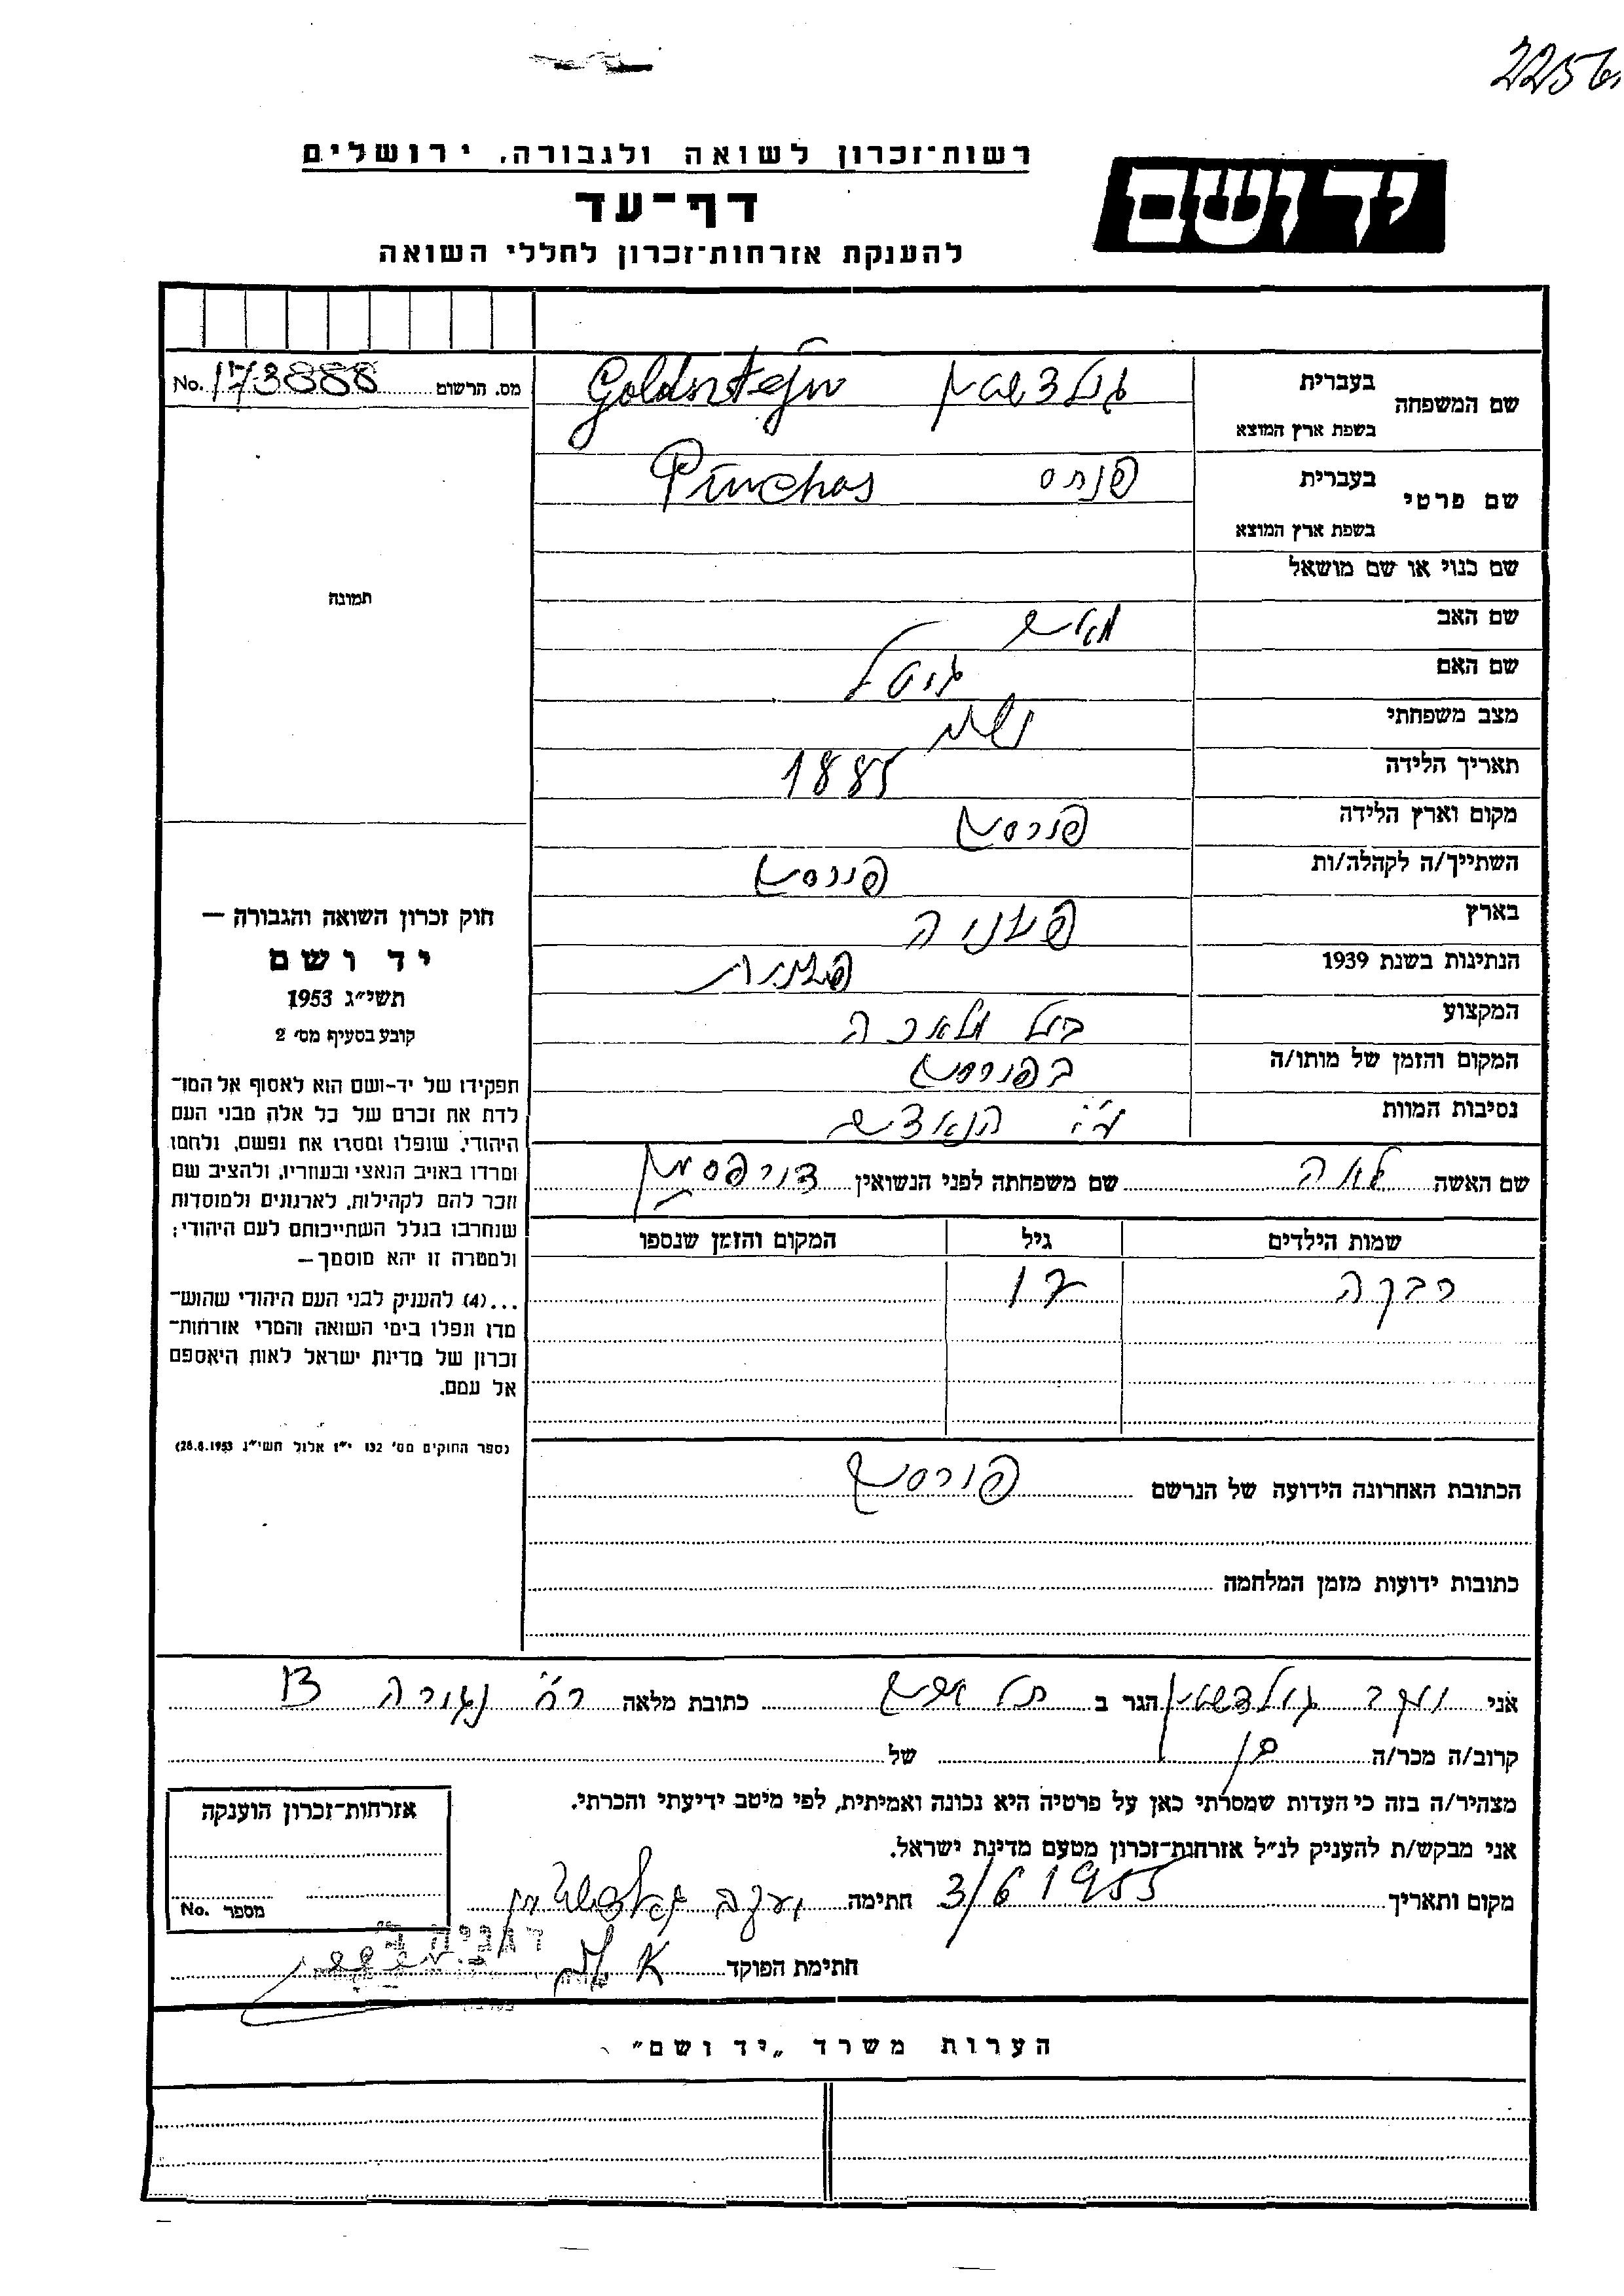 2256
רשות־זכרון לשואה ולגבורה, ירושלים
יד ושם
דף־עד
להענקת אזרחות־זכרון לחללי השואה
מס. הרשום No. 173888
שם המשפחה
בעברית
בשפת ארץ המוצא
גולדשטין Goldsztejn
שם פרטי
בעברית
בשפת ארץ המוצא
פנחס Pinchas
שם כנוי או שם מושאל
תמונה
שם האב
שם האם גיטל
מצב משפחתי נשוי
תאריך הלידה 1885
מקום וארץ הלידה
השתייך/ה לקהלה/ות
בארץ פולניה
הנתינות בשנת 1939 פולנית
המקצוע בעל מלאכה
המקום והזמן של מותו/ה
נסיבות המוות ע"י הנאצים
שם האשה לאה שם משפחתה לפני הנשואין
שמות הילדים גיל המקום והזמן שנספו
רבקה
הכתובת האחרונה הידועה של הנרשם
כתובות ידועות מזמן המלחמה
חוק זכרון השואה והגבורה —
יד ושם
תשי״ג 1953
קובע בסעיף מס׳ 2
תפקידו של יד-ושם הוא לאסוף אל המו־
לדת את זכרם של כל אלה מבני העם
היהודי, שנפלו ומסרו את נפשם, נלחמו
ומרדו באויב הנאצי ובעוזריו, ולהציב שם
וזכר להם לקהילות, לארגונים ולמוסדות
שנחרבו בגלל השתייכותם לעם היהודי;
ולמטרה זו יהא מוסמך—
...(4) להעניק לבני העם היהודי שהוש־
מדו ונפלו בימי השואה והמרי אזרחות־
זכרון של מדינת ישראל לאות היאספם
אל עמם.
(ספר החוקים מס׳ 132 י״ז אלול תשי״ג 28.8.1953)
אני יעקב גולדשטין הגר ב תל אביב כתובת מלאה רח'
קרוב/ה מכר/ה בן של
מצהיר/ה בזה כי העדות שמסרתי כאן על פרטיה היא נכונה ואמיתית, לפי מיטב ידיעתי והכרתי.
אני מבקש/ת להעניק לנ״ל אזרחות־זכרון מטעם מדינת ישראל.
מקום ותאריך 3/6 1955 חתימה יעקב גולדשטין
חתימת הפוקד
אזרחות־זכרון הוענקה
מספר No.
הערות משרד „יד ושם״